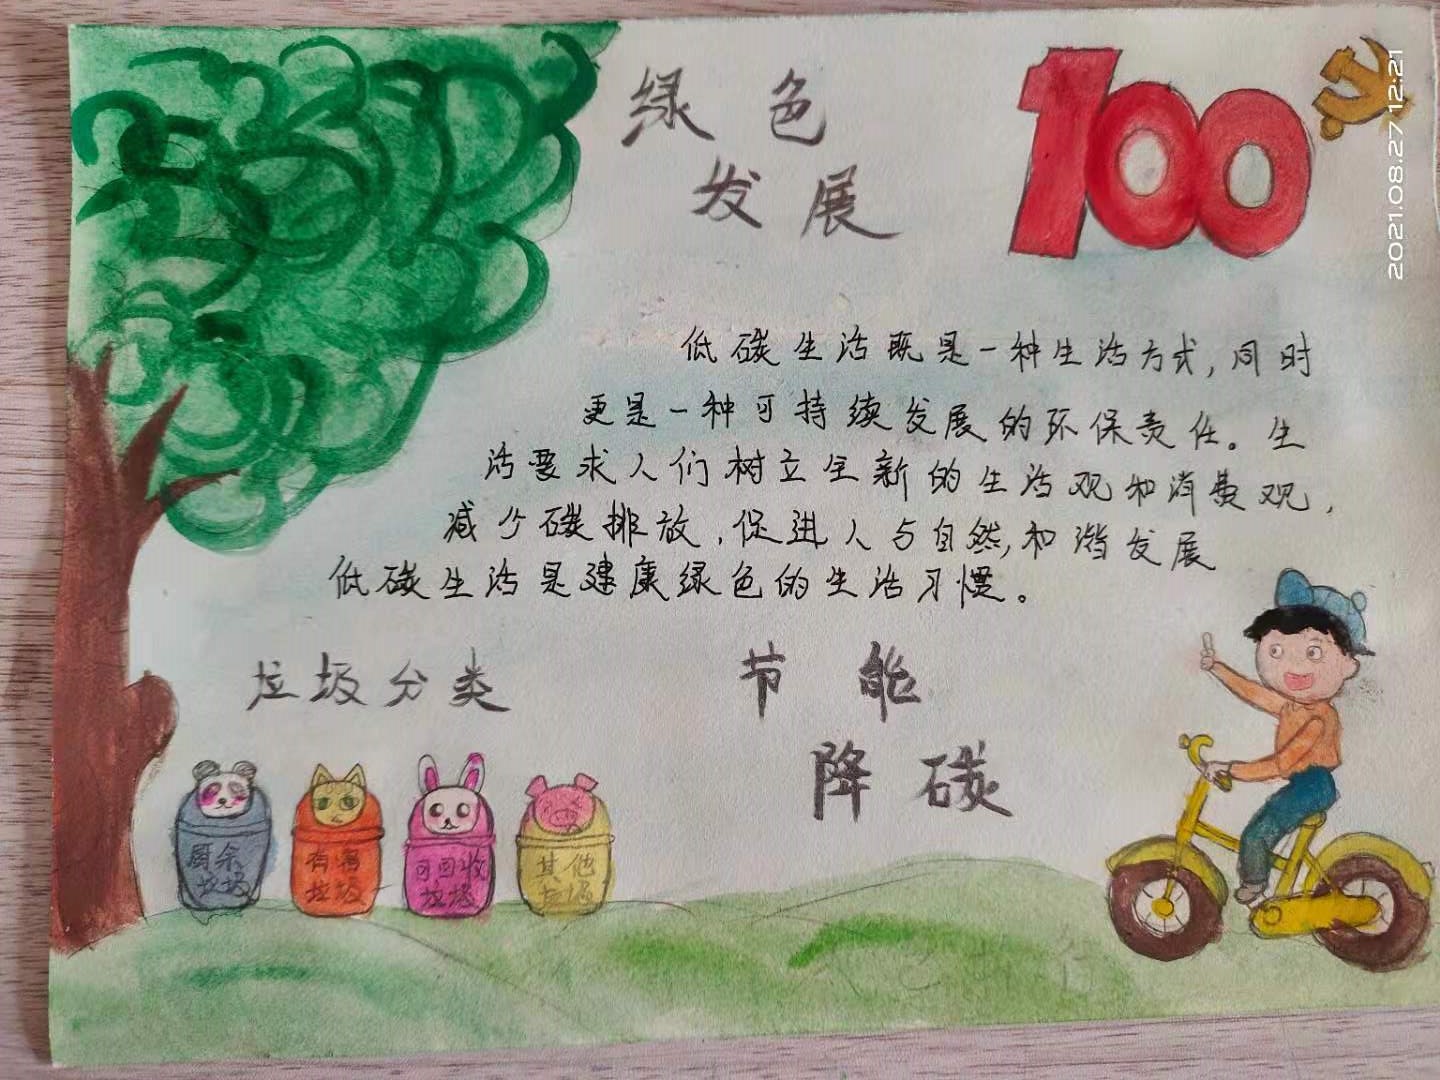 绿色
发展
100
2021.08.27 12:21
低碳生活既是一种生活方式,同时
更是一种可持续发展的环保责任。生
活要求人们树立全新的生活观和消费观,
减少碳排放,促进人与自然,和谐发展
低碳生活是健康绿色的生活习惯。
垃圾分类
节能
降碳
厨余
垃圾
有害
垃圾
可回收
垃圾
其他
垃圾